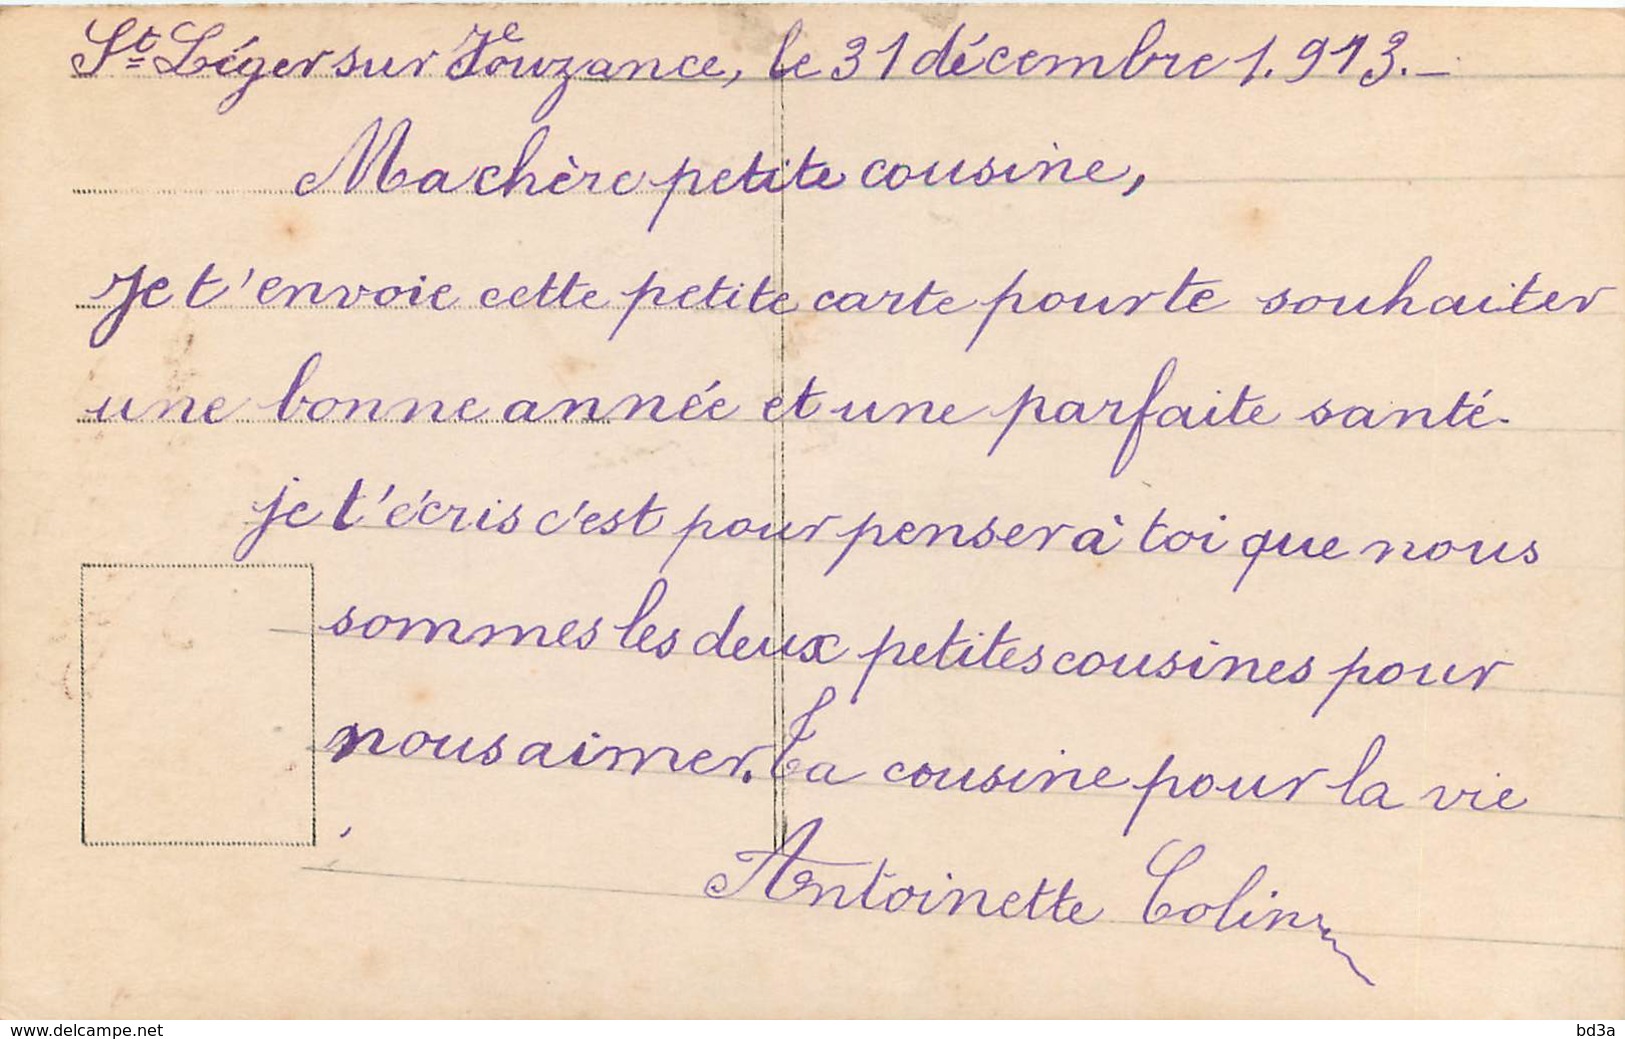 St Léger sur Vouzance, le 31 décembre 1.913.-
Ma chère petite cousine,
Je t'envoie cette petite carte pour te souhaiter
une bonne année et une parfaite santé.
je t'écris c'est pour penser à toi que nous
sommes les deux petites cousines pour
nous aimer. Ta cousine pour la vie
Antoinette Colin
www.delcampe.net
bd3a